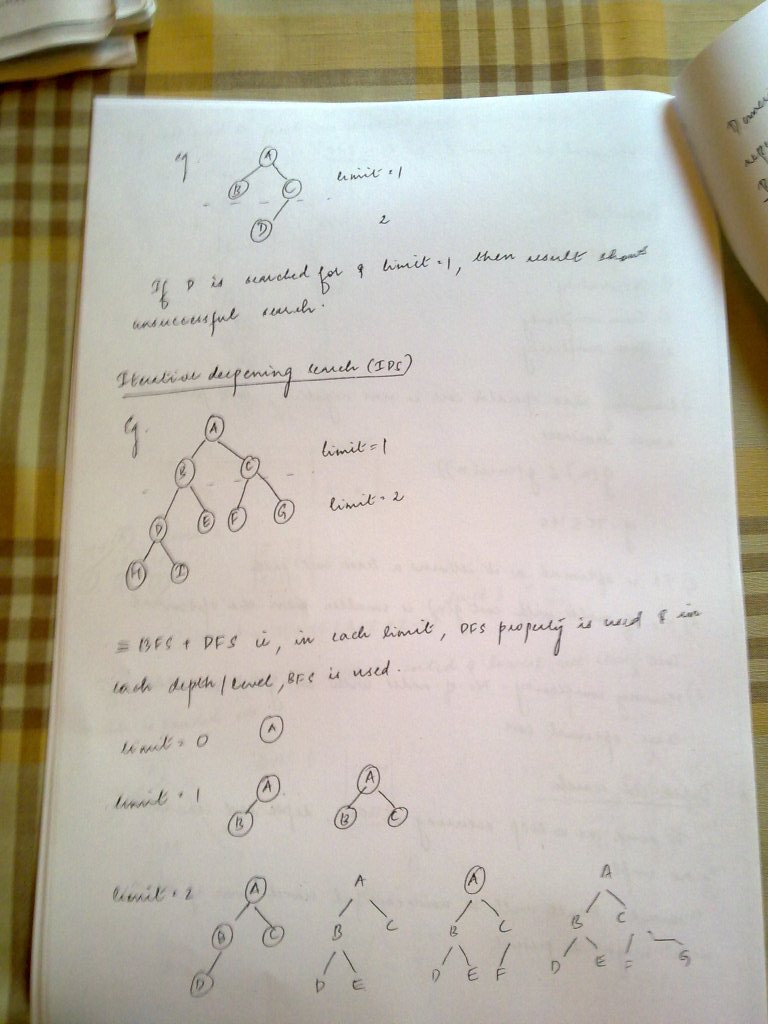 eg.
A
B C limit = 1
D 2
If D is searched for & limit = 1, then result shows
unsuccessful search.
Iterative deepening search (IDS)
Eg.
A limit = 1
B C
D E F G limit = 2
H I
≡ BFS + DFS ie, in each limit, DFS property is used & in
each depth/level, BFS is used.
limit = 0 A
limit = 1 A A
B B C
limit = 2 A A A A
B C B C B C B C
D D E D E F D E F G